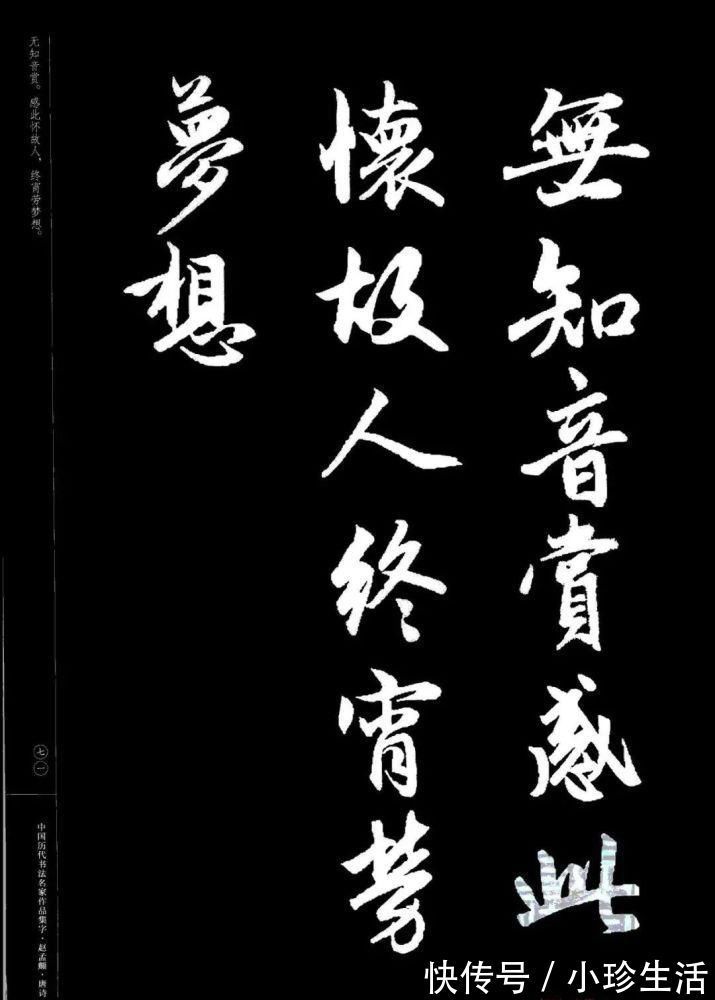 無知音賞感此
懷故人終宵勞
夢想
无知音赏。感此怀故人，终宵劳梦想。
七一
中国历代书法名家作品集字·赵孟頫·唐诗
快传号 / 小珍生活